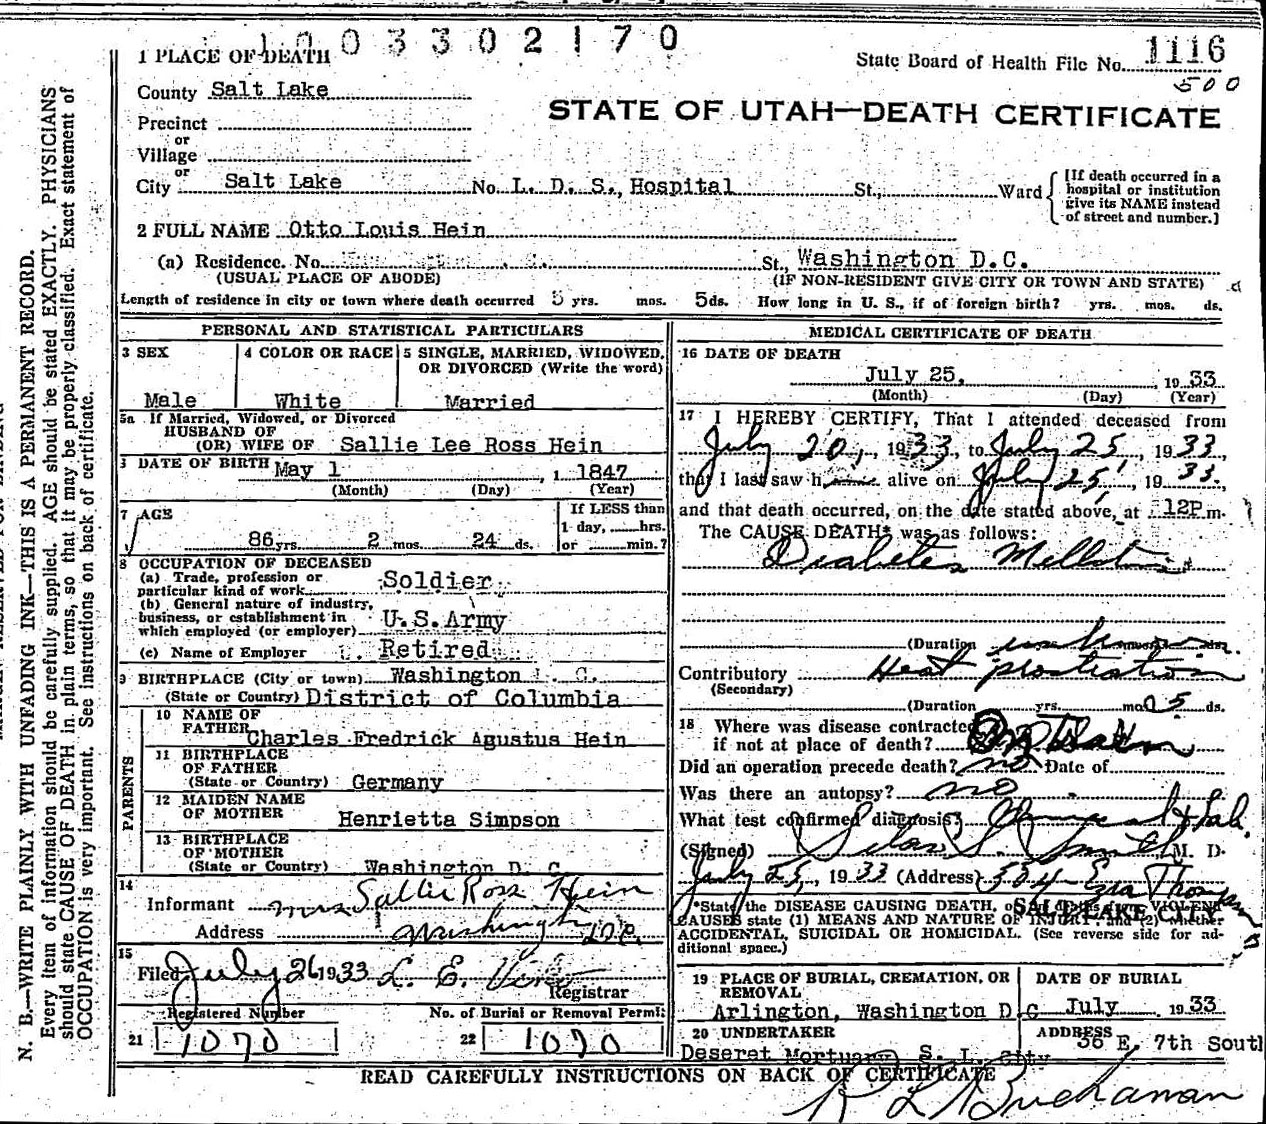 1003302170
1 PLACE OF DEATH
State Board of Health File No. 1116
500
County Salt Lake
STATE OF UTAH—DEATH CERTIFICATE
Precinct
or
Village
or
City Salt Lake No. L. D. S., Hospital St., Ward
[If death occurred in a
hospital or institution
give its NAME instead
of street and number.]
2 FULL NAME Otto Louis Hein
(a) Residence. No. St., Washington D.C.
(USUAL PLACE OF ABODE) (IF NON-RESIDENT GIVE CITY OR TOWN AND STATE)
Length of residence in city or town where death occurred yrs. mos. 5 ds. How long in U. S., if of foreign birth? yrs. mos. ds.
PERSONAL AND STATISTICAL PARTICULARS
3 SEX 4 COLOR OR RACE 5 SINGLE, MARRIED, WIDOWED,
OR DIVORCED (Write the word)
Male White Married
5a If Married, Widowed, or Divorced
HUSBAND OF
(OR) WIFE OF Sallie Lee Ross Hein
DATE OF BIRTH May 1 , 1847
(Month) (Day) (Year)
7 AGE If LESS than
1 day, hrs.
86 yrs. 2 mos. 24 ds. or min.?
8 OCCUPATION OF DECEASED
(a) Trade, profession or
particular kind of work Soldier
(b) General nature of industry,
business, or establishment in
which employed (or employer) U.S.Army
(c) Name of Employer Retired
9 BIRTHPLACE (City or town) Washington D. C.
(State or Country) District of Columbia
PARENTS
10 NAME OF
FATHER Charles Fredrick Agustus Hein
11 BIRTHPLACE
OF FATHER
(State or Country) Germany
12 MAIDEN NAME
OF MOTHER Henrietta Simpson
13 BIRTHPLACE
OF MOTHER
(State or Country) Washington D. C.
14
Informant Mrs Sallie Ross Hein
Address Washington D.C.
15
Filed July 26 1933 L. E.
Registrar
Registered Number No. of Burial or Removal Permit
21 1070 22 1070
MEDICAL CERTIFICATE OF DEATH
16 DATE OF DEATH
July 25, 1933
(Month) (Day) (Year)
17 I HEREBY CERTIFY, That I attended deceased from
July 20, 1933, to July 25, 1933
that I last saw h alive on July 25, 1933.,
and that death occurred, on the date stated above, at 12P m.
The CAUSE DEATH* was as follows:
Diabetes Mellitus
(Duration unknown ds.
Contributory Heat prostration
(Secondary)
(Duration yrs. mos. 5 ds.
18 Where was disease contracted
if not at place of death?
Did an operation precede death? no Date of
Was there an autopsy? no
What test confirmed diagnosis? Clinical & Lab.
(Signed) Silas S. Smith M. D.
July 25, 1933 (Address) 504 Ezra Thompson
SALT LAKE CITY
*State the DISEASE CAUSING DEATH, or in deaths from VIOLENT
CAUSES state (1) MEANS AND NATURE OF INJURY; and (2) whether
ACCIDENTAL, SUICIDAL OR HOMICIDAL. (See reverse side for ad-
ditional space.)
19 PLACE OF BURIAL, CREMATION, OR
REMOVAL DATE OF BURIAL
Arlington, Washington D C July 1933
20 UNDERTAKER ADDRESS
Deseret Mortuary S. L. City 36 E. 7th South
READ CAREFULLY INSTRUCTIONS ON BACK OF CERTIFICATE
R L Buchanan
N. B.—WRITE PLAINLY WITH UNFADING INK—THIS IS A PERMANENT RECORD.
Every item of information should be carefully supplied. AGE should be stated EXACTLY. PHYSICIANS
should state CAUSE OF DEATH in plain terms, so that it may be properly classified. Exact statement of
OCCUPATION is very important. See instructions on back of certificate.